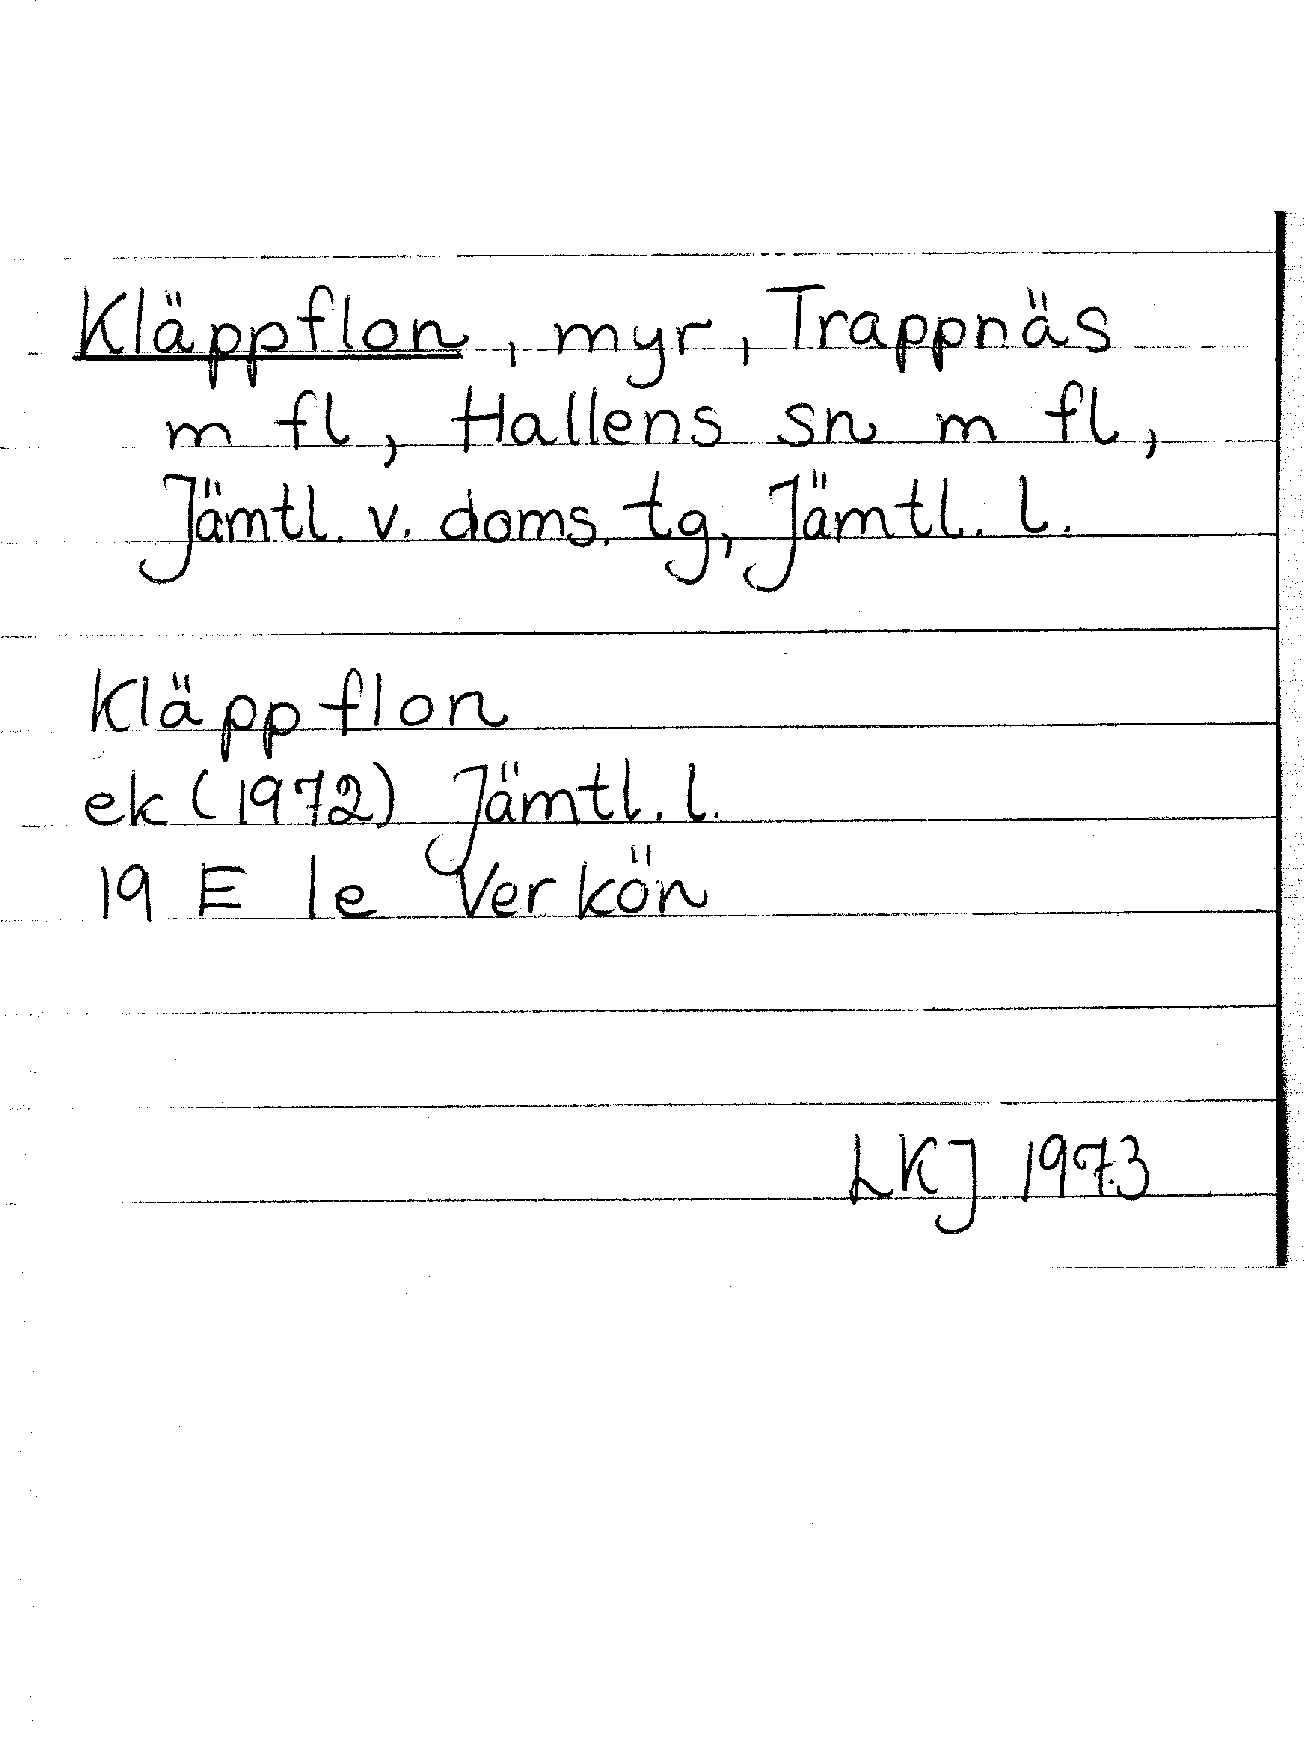 Kläppflon, myr, Trappnäs
m fl, Hallens sn m fl,
Jämtl. v. doms. tg, Jämtl. l.
Kläppflon
ek (1972) Jämtl. l.
19 E 1e Verkön
LKJ 1973